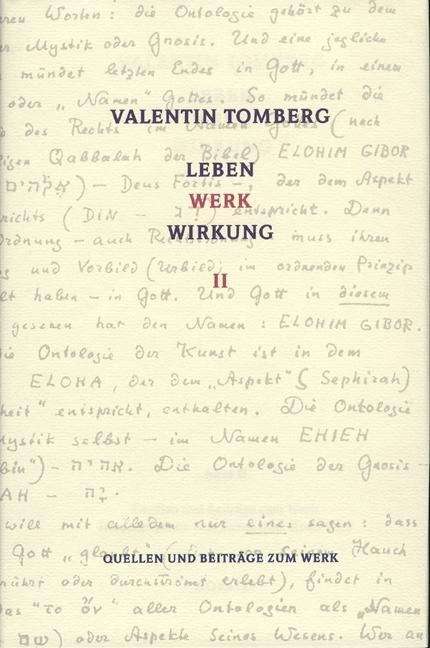 ren Worten: die Ontologie gehört zu dem
r Mystik oder Gnosis. Und eine jegliche
mündet letzten Endes in Gott, in einem
oder „Namen" Gottes. So mündet die
des Rechts im Namen (nach
VALENTIN TOMBERG
igen Qabbalah der Bibel) ELOHIM GIBOR
LEBEN
אֱלֹהִים) – Deus Fortis –, der dem Aspekt
WERK
richts (DIN – entspricht. Denn
WIRKUNG
rdnung – auch muss ihren
und Vorbild (Urbild) im ordnenden Prinzip
II
lt haben – in Gott. Und Gott in diesem
gesehen hat den Namen: ELOHIM GIBOR.
ie Ontologie der Kunst ist in dem
ELOHA, der dem „Aspekt" (Sephirah)
heit" entspricht, enthalten. Die Ontologie
Mystik selbst – im Namen EHIEH
bin") – אהיה. Die Ontologie der Gnosis –
AH – יָהּ.
will mit alledem nur eines sagen: dass
Gott „glaubt" Hauch
QUELLEN UND BEITRÄGE ZUM WERK
rührt oder durchströmt erlebt), findet in
das "το ὄν" aller Ontologien als „Namen
שם) oder Aspekte Seines Wesens. Wer an